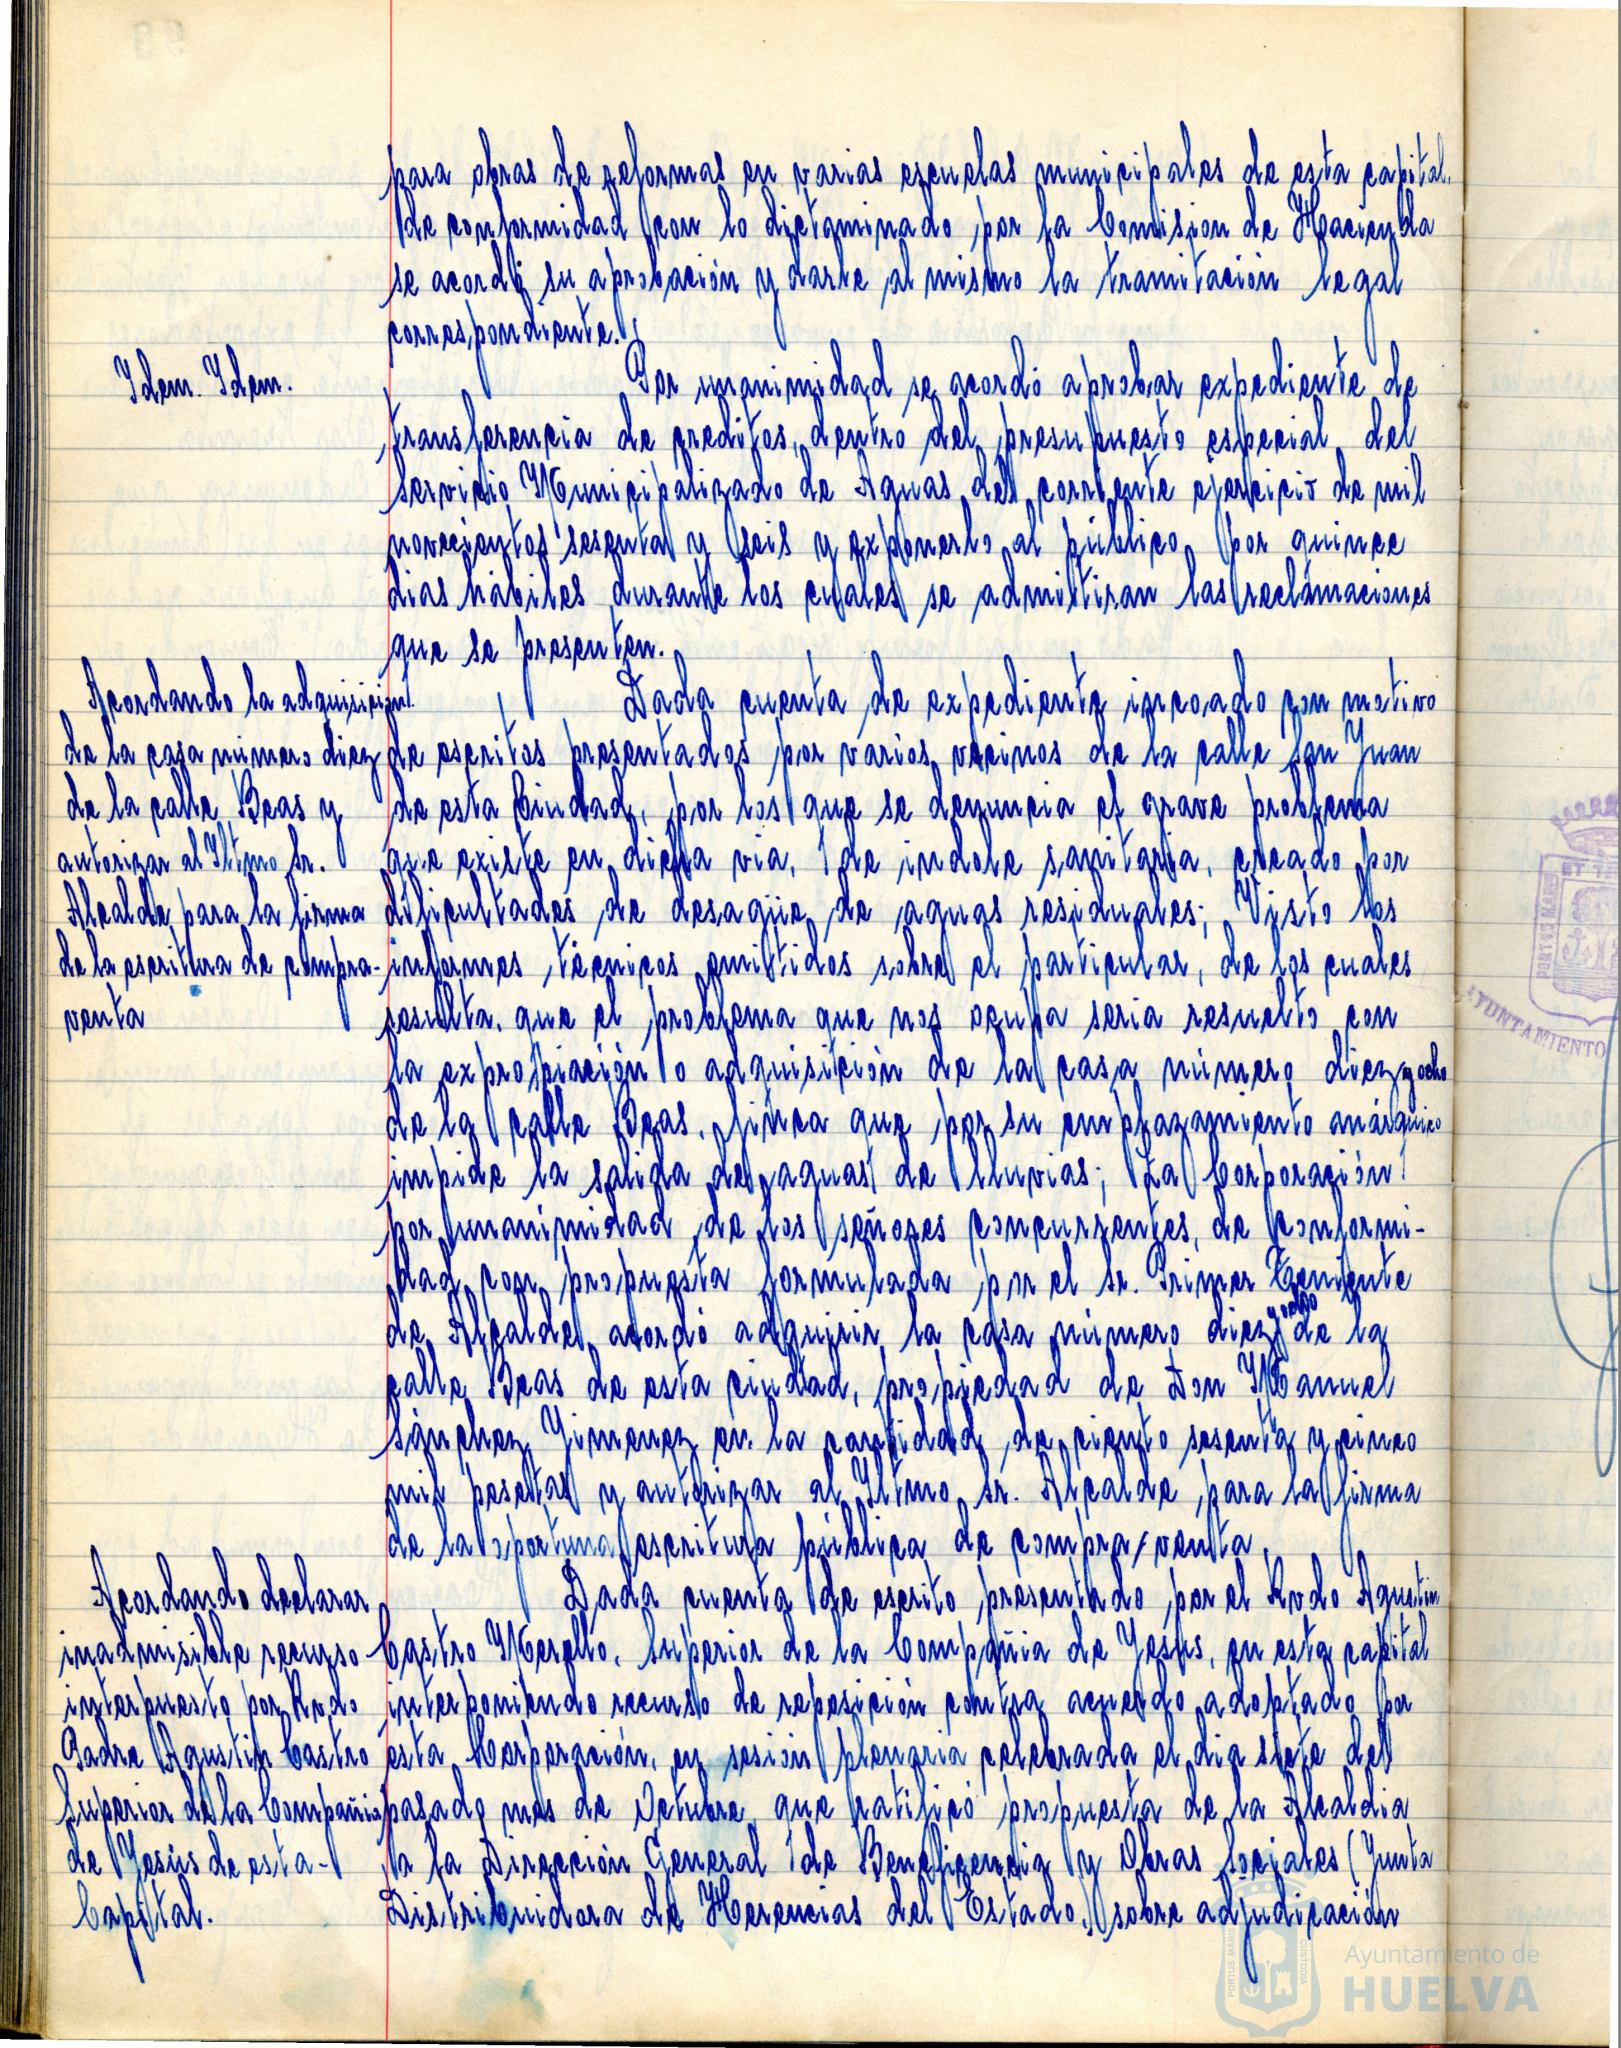 para obras de reformas en varias escuelas municipales de esta capital.
de conformidad con lo dictaminado por la Comision de Hacienda
se acordó su aprobación y darle al mismo la tramitación legal
correspondiente.
Idem. Idem.
Por unanimidad se acordó aprobar expediente de
transferencia de creditos, dentro del presupuesto especial del
Servicio Municipalizado de Aguas del corriente ejercicio de mil
novecientos sesenta y seis y exponerlo al público por quince
dias hábiles durante los cuales se admitiran las reclamaciones
que se presenten.
Acordando la adquisicion
de la casa número diez
de la calle Beas y
autorizar al Iltmo Sr.
Alcalde para la firma
de la escritura de compra-
venta
Dada cuenta de expediente incoado con motivo
de escritos presentados por varios vecinos de la calle San Juan
de esta Ciudad, por los que se denuncia el grave problema
que existe en dicha via, de indole sanitaria, creado por
dificultades de desagüe de aguas residuales; Visto los
informes técnicos emitidos sobre el particular, de los cuales
resulta, que el problema que nos ocupa seria resuelto con
la expropiación o adquisición de la casa número diez y ocho
de la calle Beas, finca que por su emplazamiento anárquico
impide la salida de aguas de lluvias; La Corporación
por unanimidad de los señores concurrentes, de conformi-
dad con propuesta formulada por el sr. Primer Teniente
de Alcalde acordó adquirir la casa número diez y ocho de la
calle Beas de esta ciudad, propiedad de Don Manuel
Sánchez Yimenez en la cantidad de ciento sesenta y cinco
mil pesetas y autorizar al Iltmo Sr. Alcalde para la firma
de la oportuna escritura pública de compra/venta.
Acordando declarar
inadmisible recurso
interpuesto por Rvdo
Padre Agustin Castro
Superior de la Compañia
de Yesús de esta-
Capital.
Dada cuenta de escrito presentado por el Rvdo Agustin
Castro Merello, Superior de la Compañia de Yesus, en esta capital
interponiendo recurso de reposición contra acuerdo adoptado por
esta Corporación, en sesión plenaria celebrada el dia siete del
pasado mes de Octubre que ratificó propuesta de la Alcaldia
a la Dirección General de Beneficencia y Obras Sociales (Junta
Distribuidora de Herencias del Estado,) sobre adjudicación
PORTUS MARIS
AYUNTAMIENTO
PORTUS MARIS
CUSTODIA
Ayuntamiento de
HUELVA